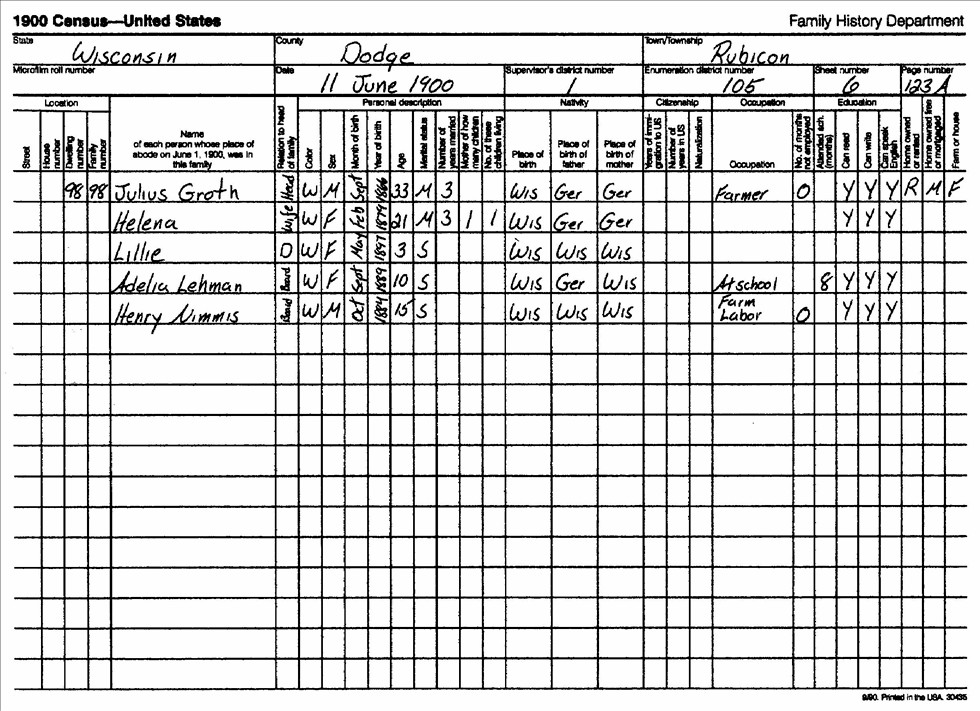 1900 Census—United States Family History Department
State Wisconsin County Dodge Town/Township Rubicon
Microfilm roll number Date 11 June 1900 Supervisor's district number 1 Enumeration district number 105 Sheet number 6 Page number 123A
Location Personal description Nativity Citizenship Occupation Education
Street House number Dwelling number Family number Name of each person whose place of abode on June 1, 1900, was in this family Relation to head of family Color Sex Month of birth Year of birth Age Marital status Number of years married Mother of how many children No. of these children living Place of birth Place of birth of father Place of birth of mother Years of immi-gration to US Number of years in US Naturalization Occupation No. of months not employed Attended sch. (months) Can read Can write Can speak English Home owned or rented Home owned free or mortgaged Farm or house
98 98 Julius Groth Head W M Sept 1866 33 M 3 Wis Ger Ger Farmer 0 Y Y Y R M F
Helena Wife W F Feb 1879 21 M 3 1 1 Wis Ger Ger Y Y Y
Lillie D W F May 1897 3 S Wis Wis Wis
Adelia Lehman Board W F Sept 1889 10 S Wis Ger Wis At school 8 Y Y Y
Henry Nimmis Board W M Oct 1884 15 S Wis Wis Wis Farm Labor 0 Y Y Y
9/90. Printed in the USA. 30435